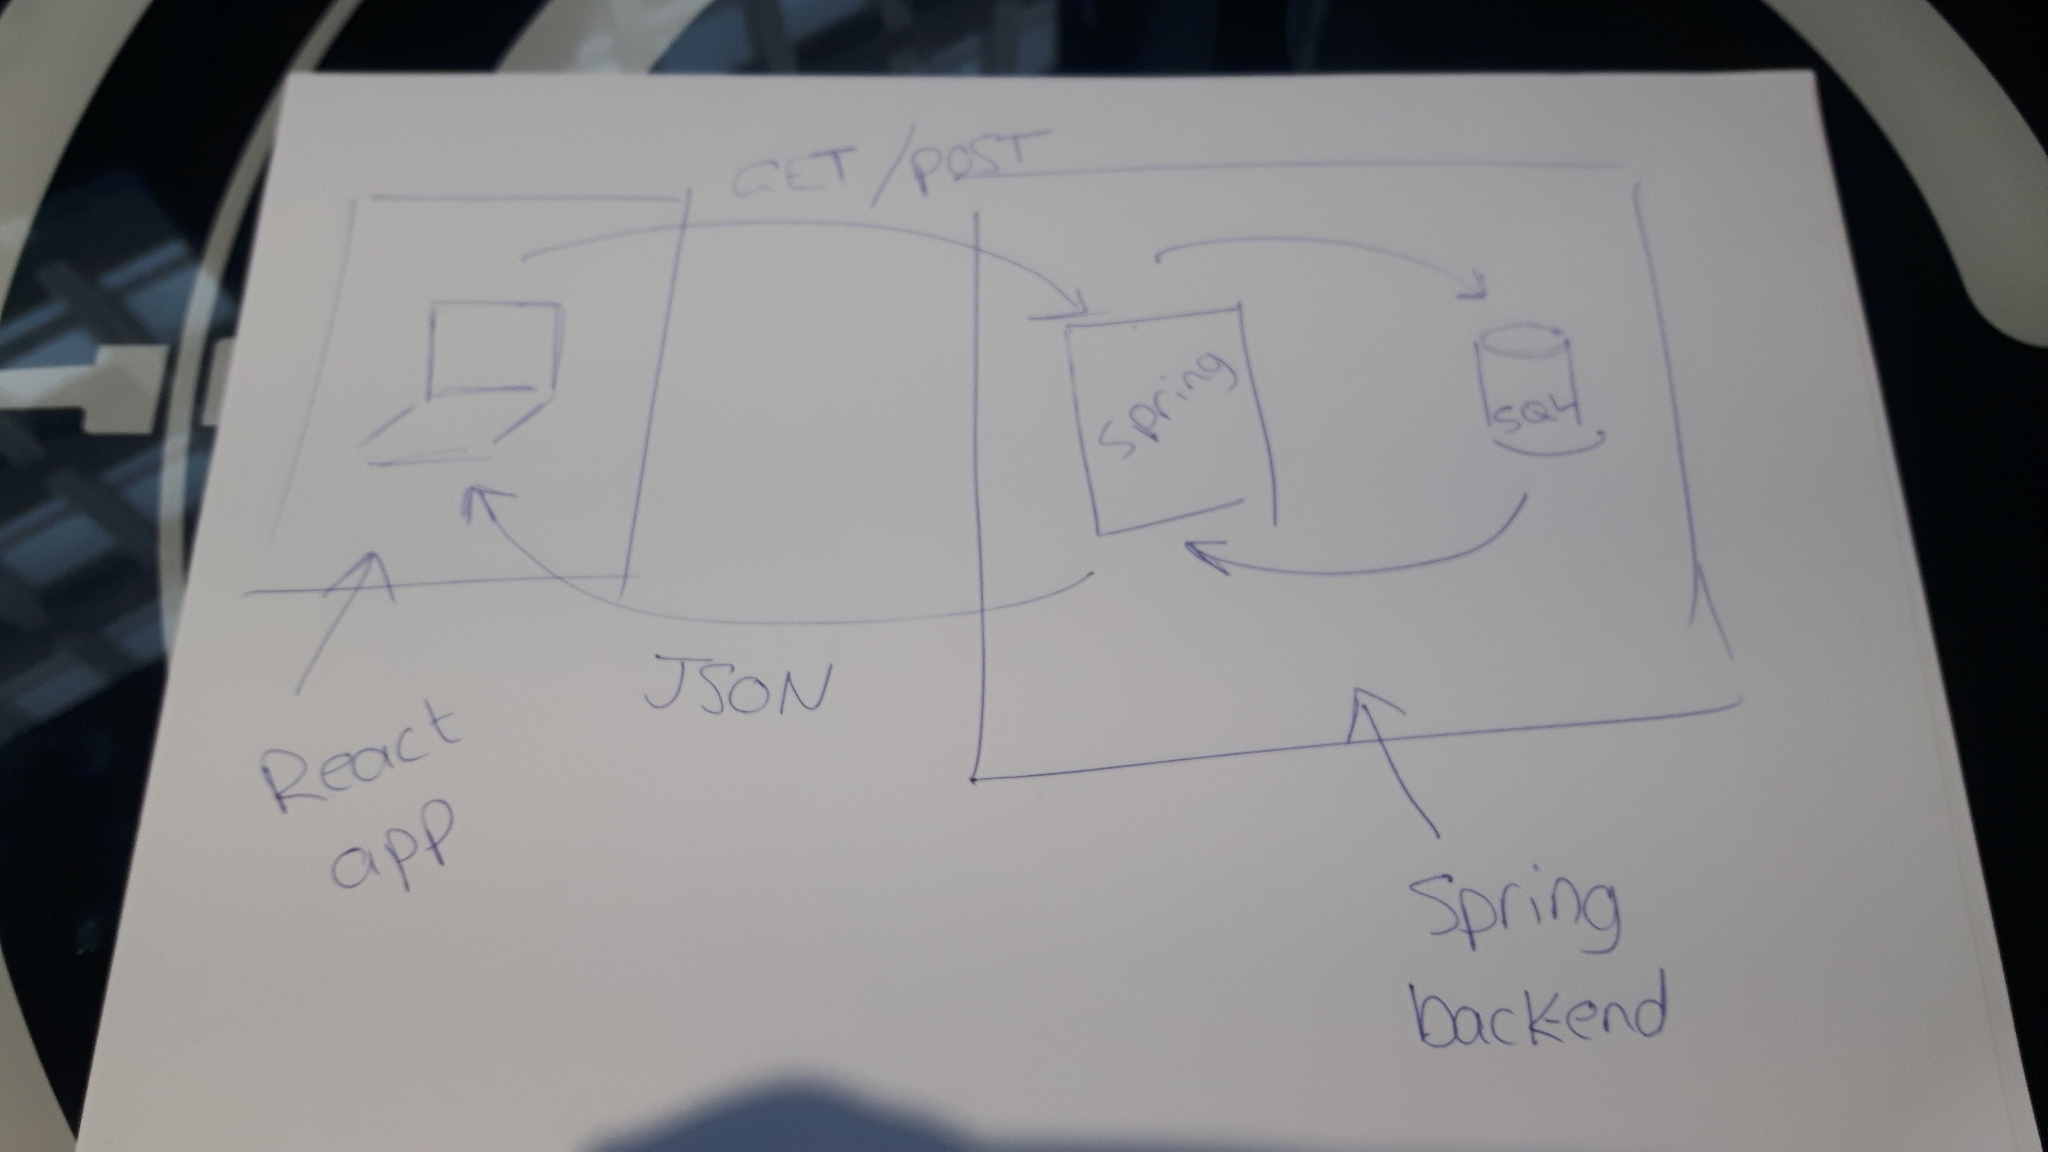 GET/POST
Spring
SQL
JSON
React
app
Spring
backend